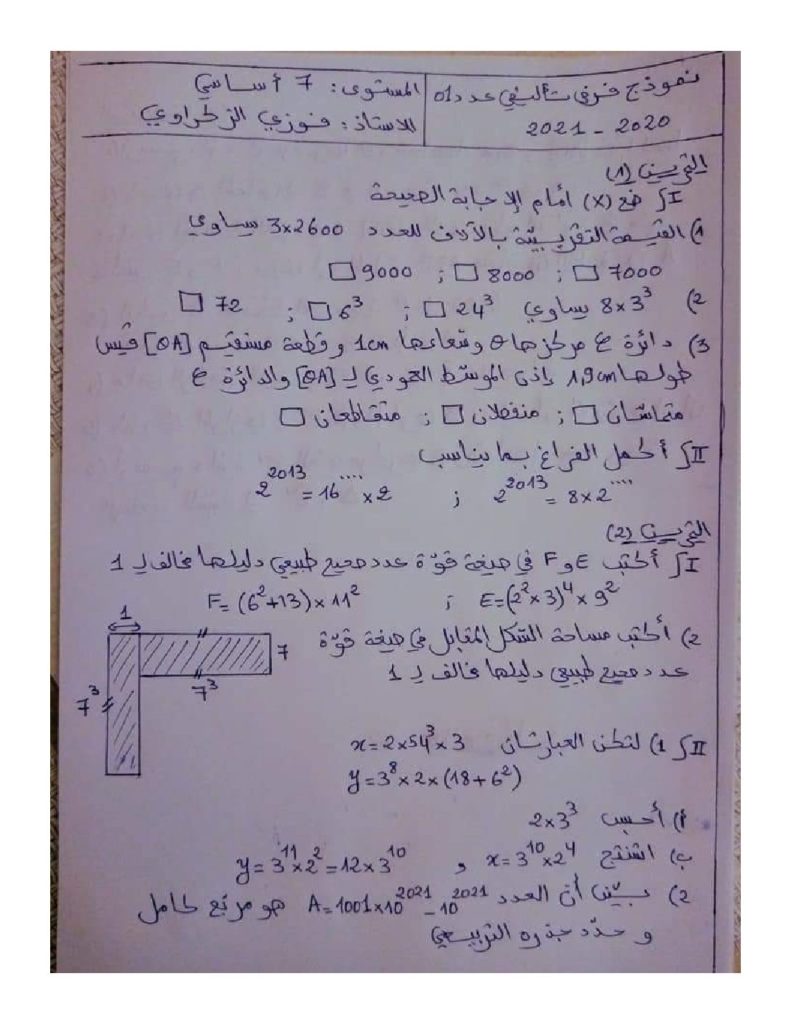 نموذج فرض تأليفي عدد 01
2020 - 2021
المستوى: 7 أساسي
الاستاذ: فوزي الزكراوي
التمرين (1)
I) ضع (x) أمام الإجابة الصحيحة
1) القيمة التقريبيّة بالآلاف للعدد 3x2600 يساوي
7000 □ ; 8000 □ ; 9000 □
2) 8x3³ يساوي 24³ □ ; 6³ □ ; 72 □
3) دائرة ع مركزها O وشعاعها 1cm و قطعة مستقيم [OA] قيس
طولها 1,9cm إذن الموسّط العمودي لـ [OA] والدائرة ع
متماسّان □ ; منفصلان □ ; متقاطعان □
II) أكمل الفراغ بما يناسب
2²⁰¹³ = 8x2^.... ; 2²⁰¹³ = 16^.... x2
التمرين (2)
I) أكتب E و F في صيغة قوّة عدد صحيح طبيعي دليلها مخالف لـ 1
E=(2²x3)⁴x9² ; F= (6²+13)x11²
2) أكتب مساحة الشكل المقابل في صيغة قوّة
عدد صحيح طبيعي دليلها مخالف لـ 1
1
7
7³
7³
II) 1) لتكن العبارتان x=2x54³x3
y=3⁸x2x(18+6²)
أ) أحسب 2x3³
ب) استنتج x=3¹⁰x2⁴ و y=3¹¹x2²=12x3¹⁰
2) بيّن أن العدد A=1001x10²⁰²¹-10²⁰²¹ هو مربّع كامل
و حدّد جذره التربيعي